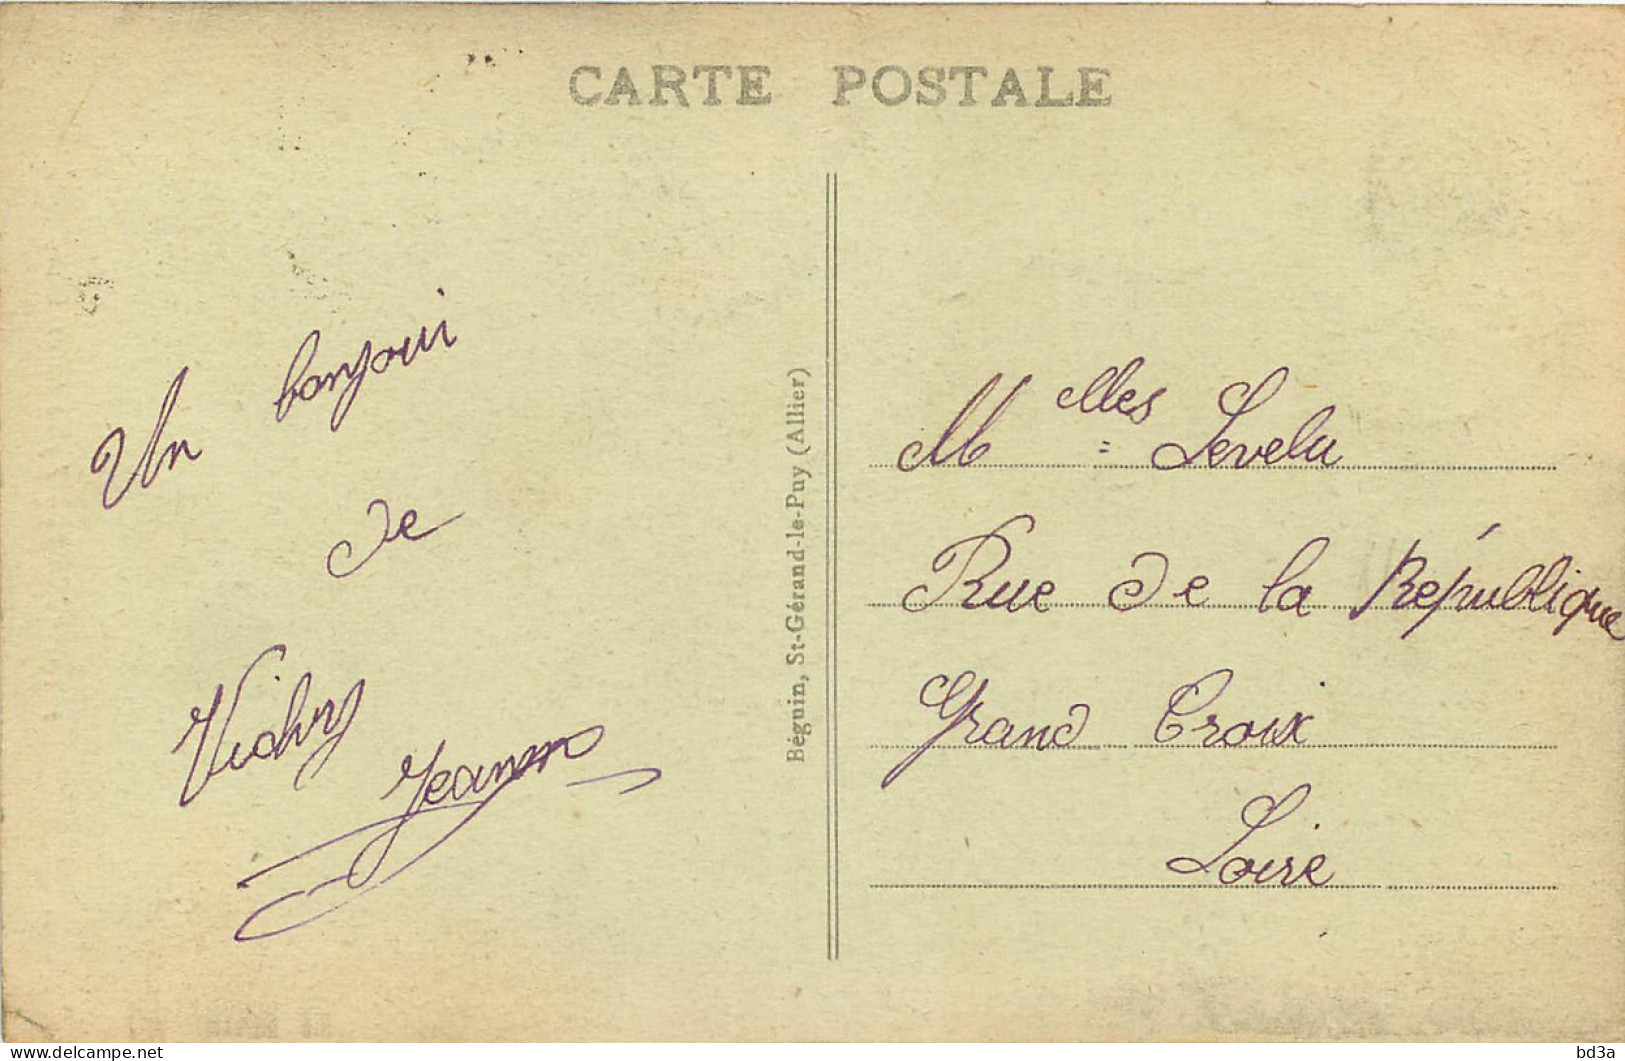 CARTE POSTALE
Un bonjour
de
Vichy
Jeanne
Béguin, St-Gérand-le-Puy (Allier)
Melles Levelu
Rue de la République
Grand Croix
Loire
delcampe.net
bd3a